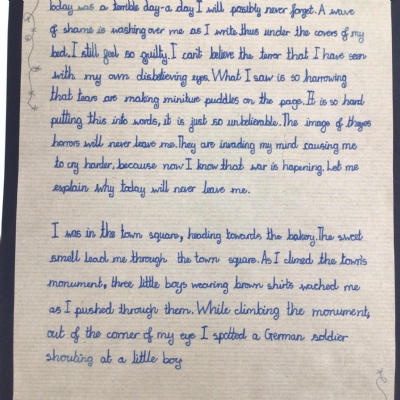 today was a terrible day-a day I will possibly never forget. A wave
of shame is washing over me as I write this under the covers of my
bed. I still feel so guilty. I can't believe the terror that I have seen
with my own disbelieving eyes. What I saw is so harrowing
that tears are making miniture puddles on the page. It is so hard
putting this into words, it is just so unbelievable. The image of
horrors will never leave me. They are invading my mind causing me
to cry harder, because now I know that war is hapening. Let me
explain why today will never leave me.
I was in the town square, heading towards the bakery. The sweet
smell lead me through the town square. As I climed the town's
monument, three little boys wearing brown shirts wached me
as I pushed through them. While climbing the monument,
out of the corner of my eye I spotted a German soldier
shouting at a little boy